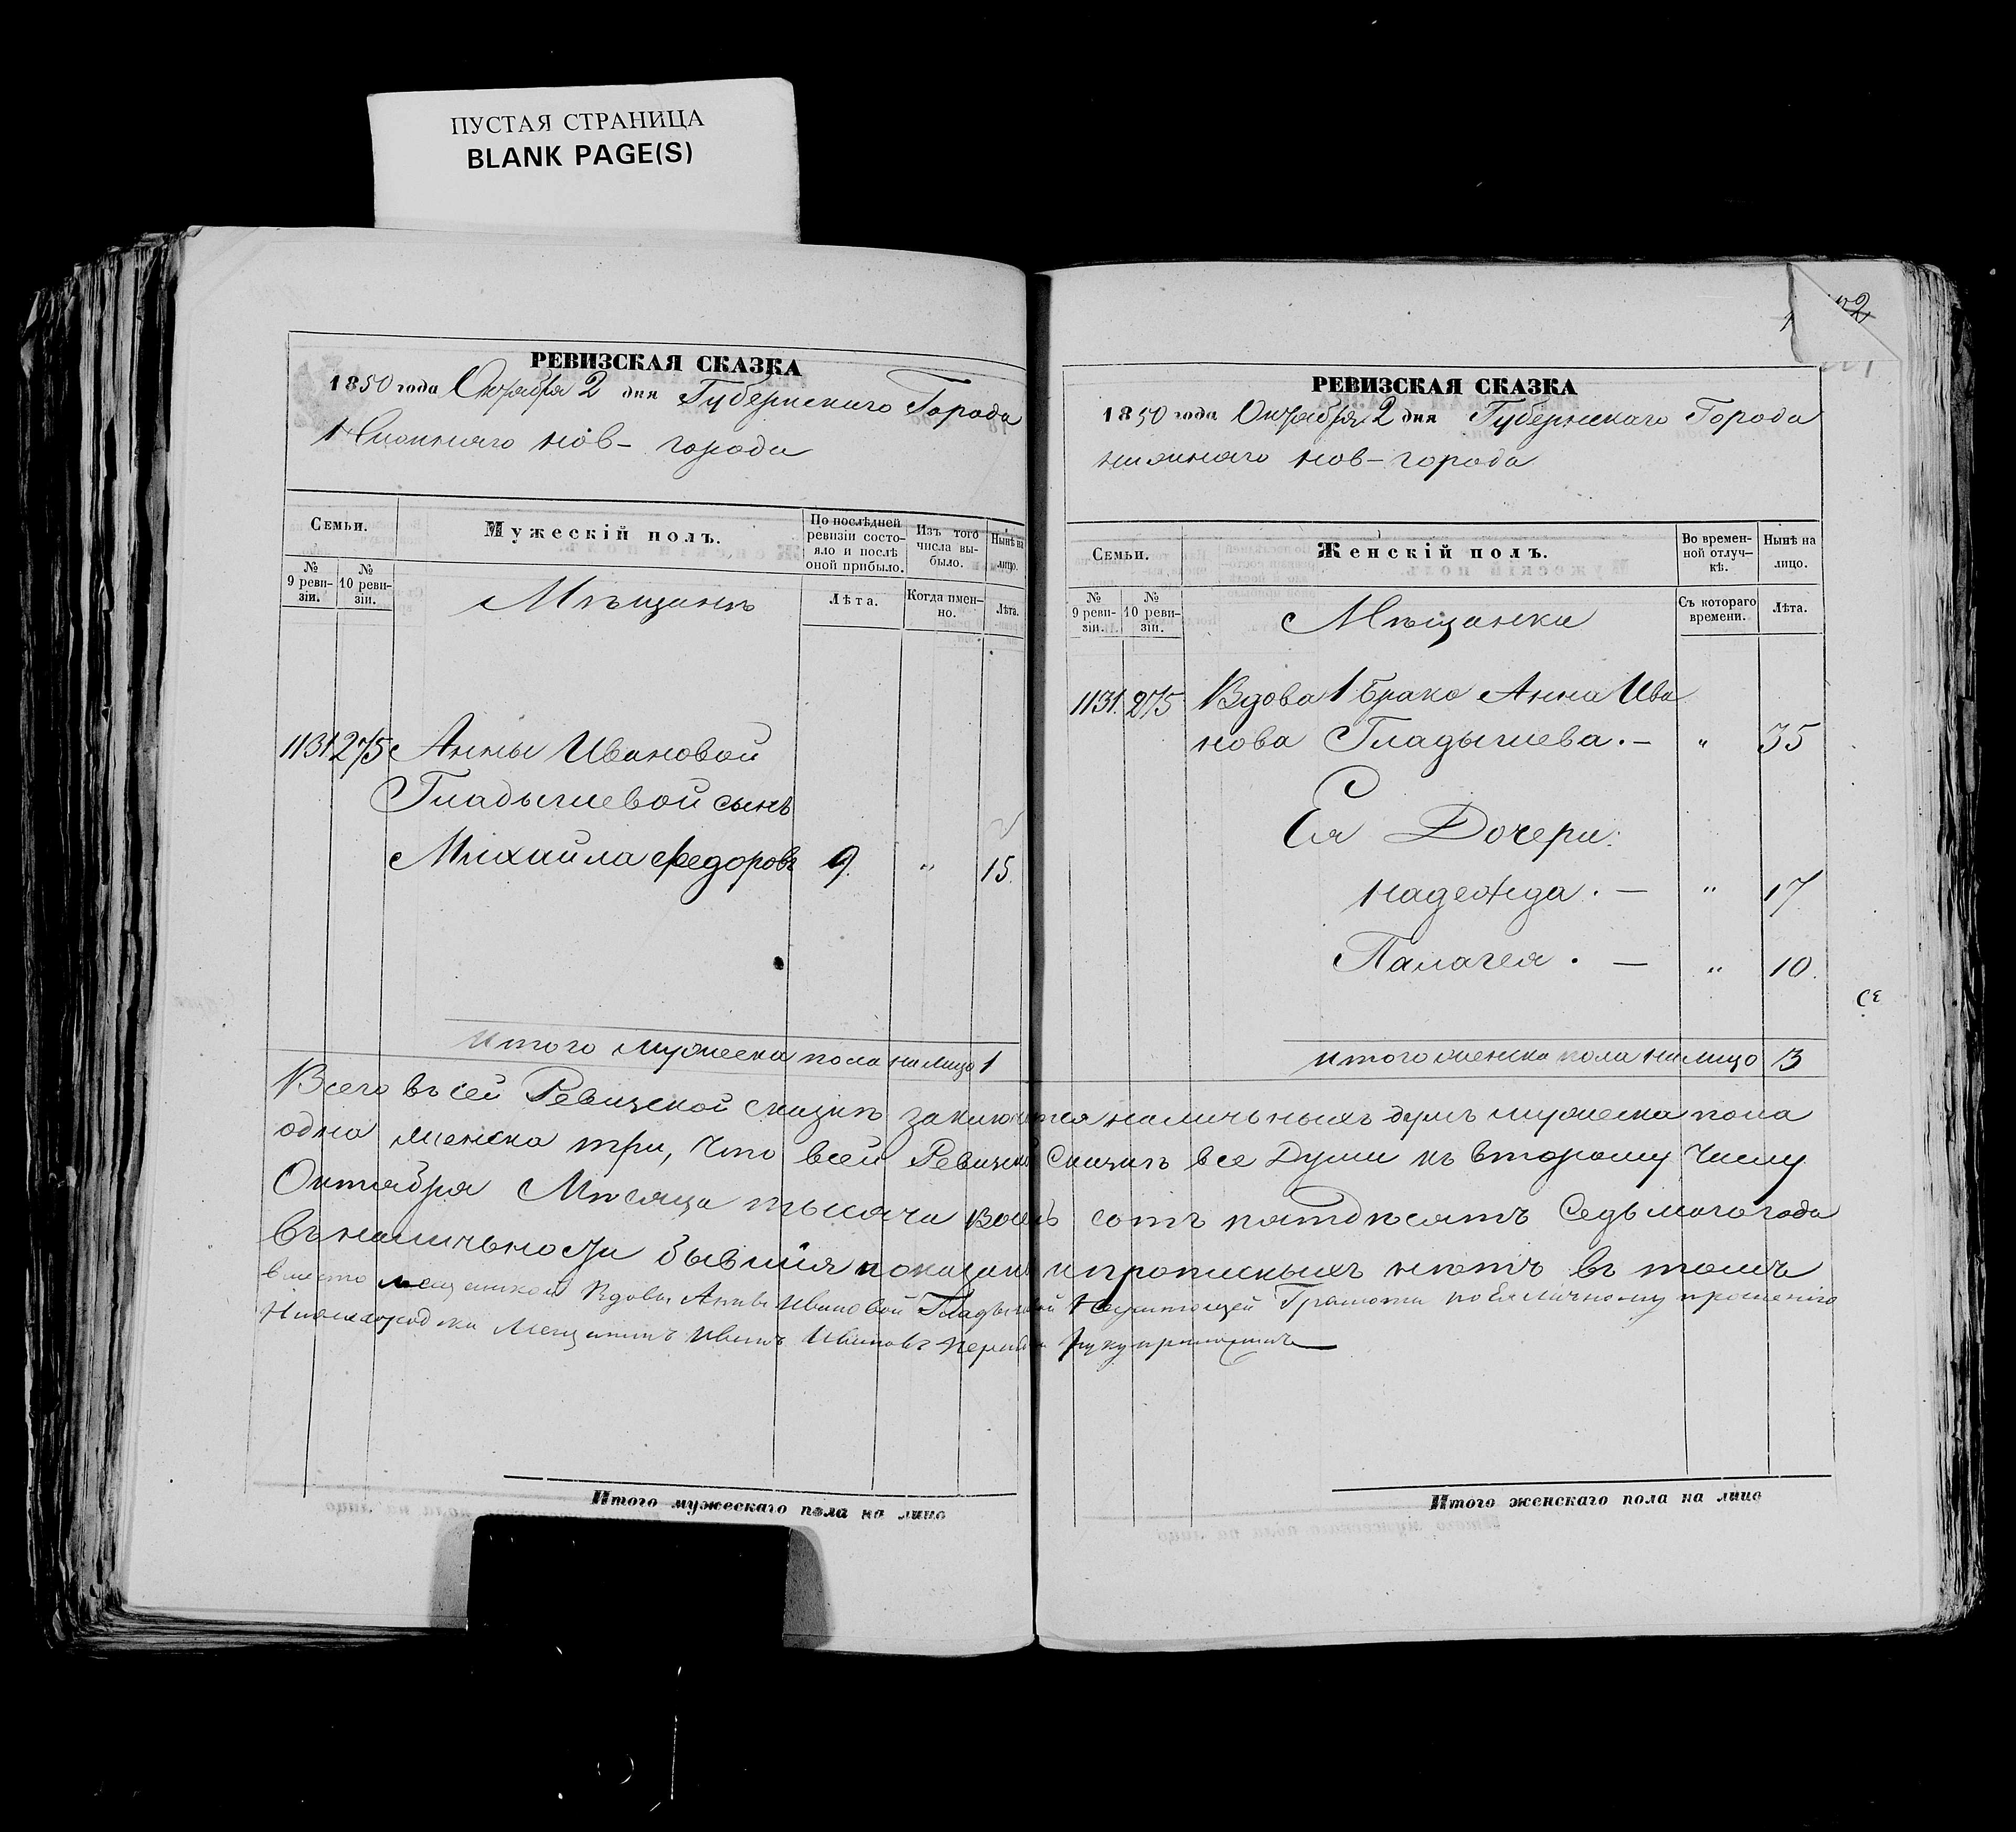 ПУСТАЯ СТРАНИЦА
BLANK PAGE(S)
РЕВИЗСКАЯ СКАЗКА
1850 года Октября 2 дня Губернскаго Города
Нижняго нов- города
Семьи.
Мужескій полъ.
По послѣдней ревизіи состо-
яло и послѣ
оной прибыло.
Изъ того
числа вы-
было.
Нынѣ на
лицо.
№
9 реви-
зіи.
№
10 реви-
зіи.
Мѣщанъ
Лѣта.
Когда имен-
но.
Лѣта.
1131 275 Анны Ивановой
Гладышевой сынъ
Михайла Федоровъ 9. " 15.
Итого мужеска пола налицо 1
РЕВИЗСКАЯ СКАЗКА
1850 года Октября 2 дня Губернскаго Города
нижняго нов-города
Семьи.
Женскій полъ.
Во времен-
ной отлуч-
кѣ.
Нынѣ на
лицо.
№
9 реви-
зіи.
№
10 реви-
зіи.
Мѣщанки
Съ котораго
времени.
Лѣта.
1131. 275 Вдова 1 брака Анна Ива
нова Гладышева. — " 35
Ея Дочери:
надежда. — " 17
Палагея. — " 10.
Итого женска пола налицо 3
Всего въ сей Ревизской сказкѣ заключется наличьныхъ душъ мужеска пола
одна женска три, Что всей Ревизской Сказкѣ все Души къ второму Числу
Октября Мѣсяца тысяча восемь сотъ пятдѣсятъ Седьмого года
въ наличьности бывшія показаны и прописныхъ нѣтъ въ томъ
вместо мещанской вдовы Анны Ивановой Гладышевой Неумеющей Грамоти по Ея личному прошенію
Нижегородски Мещанинъ Иванъ Ивановъ руку приложилъ
Итого мужескаго пола на лицо
Итого женскаго пола на лицо